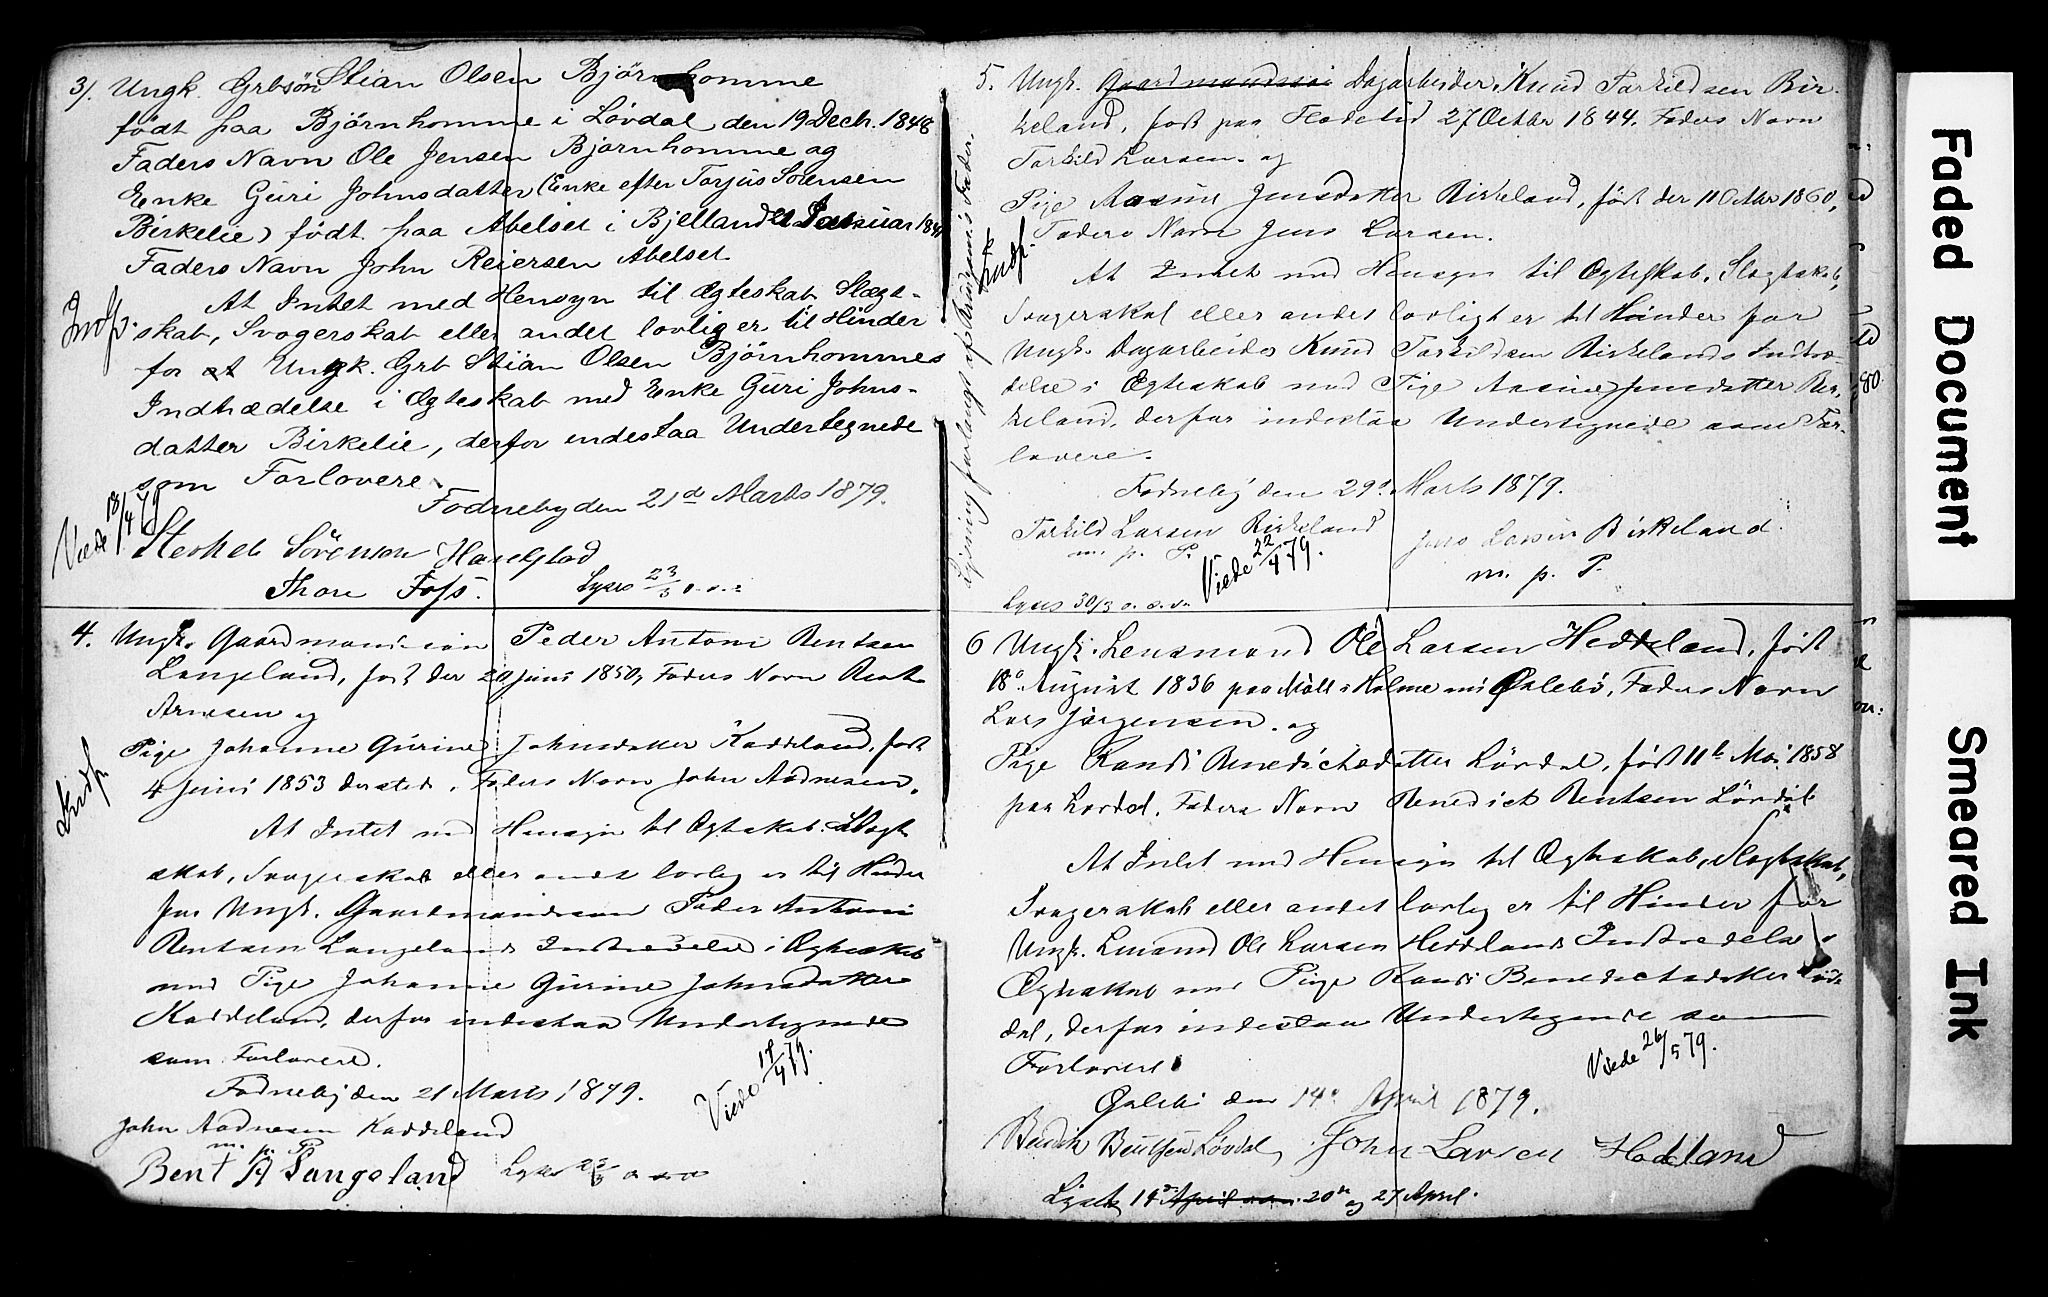 3). Ungk. Grbsön Stian Olsen Björnhomme
födt paa Björnhomme i Lövdal den 19 Decbr. 1848
Faders Navn Ole Jensen Björnhomme og
Enke Guri Johnsdatter (Enke efter Torjus Sörensen
Birkelie) födt paa Abelset i Bjelland Januar 184
Faders Navn John Reiersen Abelset.
At Intet med Hensyn til Ægteskab Slægt-
Indf. skab, Svogerskab eller andet lovlig er til Hinder
for at Ungk. Grb Stian Olsen Björnhommes
Indtrædelse i Ægteskab med Enke Guri Johns-
datter Birkelie, derfor indestaa Undertegnede
som Forlovere.
Fodneby den 21de Marts 1879.
Viede 18/4 79
Sörensen
Thore Foss.
Lyses 23/3 o.s.v.
4. Ungk. Gaardmandssön Peder Antoni Bentsen
Langeland, født der 20 Juni 1850, Faders Navn Bent
Arnesen og
Pige Johanne Gurine Johnsdatter Kaddeland, født
4 Juni 1853 dersteds, Faders Navn John Aadnesen.
Indf.
At Intet med Hensyn til Ægteskab, Slægt
skab, Svogerskab eller andet lovlig er til Hinder
for Ungk. Gaardmandssøn Peder Antoni
Bentsen Langelands Indtrædelse i Ægteskab
med Pige Johanne Gurine Johnsdatter
Kaddeland, derfor indestaa Undertegnede
som Forlovere.
Fodneby den 21 Marts 1879.
Viede 17/4 79.
John Aadnesen Kaddeland
m. p. P.
Bent A Langeland Lyses 23/3
Lysning forlangt af Brudens Fader.
5. Ungk. Gaardmandssøn Dagarbeider Knud Tarkildsen Bir-
keland, født paa 27 Octbr 1844. Faders Navn
Tarkild Larsen. og
Pige Aasine Jensdatter Birkeland, født der 11 Octbr 1860,
Faders Navn Jens Larsen.
Indf.
At Intet med Hensyn til Ægteskab, Slægtskab,
Svogerskab eller andet lovligt er til Hinder for
Ungk. Dagarbeider Knud Tarkildsen Birkelands Indtræ-
delse i Ægteskab med Pige Aasine Jensdatter Bir-
keland, derfor indestaa Undertegnede som For-
lovere.
Fodneby den 29de Marts 1879.
Tarkild Larsen Birkeland
m. p. P.
Viede 22/4 79.
Jens Larsen Birkeland.
m. p. P.
Lyses 30/3 o. s. v.
6 Ungk. Lensmand Ole Larsen Heddeland, født
18de August 1836 paa Møll i Holme ved Øslebø, Faders Navn
Lars Jørgensen. og
Pige Randi Benedichtsdatter Lövdal, født 11te Mai 1858
paa Lovdal. Faders Navn Benedict Bentsen Lövdal
At Intet med Hensyn til Ægteskab, Slægtskab,
Svogerskab eller andet lovlig er til Hinder for
Ungk. Lensmand Ole Larsen Heddelands Indtrædelse i
Ægteskab med Pige Randi Benedichtsdatter Lövd-
dal, derfor indestaa Undertegnede som
Forlovere
Viede 26/5 79.
Øslebø den 14de April 1879.
Bentsen Løvdal, John Larsen Heddeland
Lyst 14de April 20de og 27 April.
Faded Document
Smeared Ink